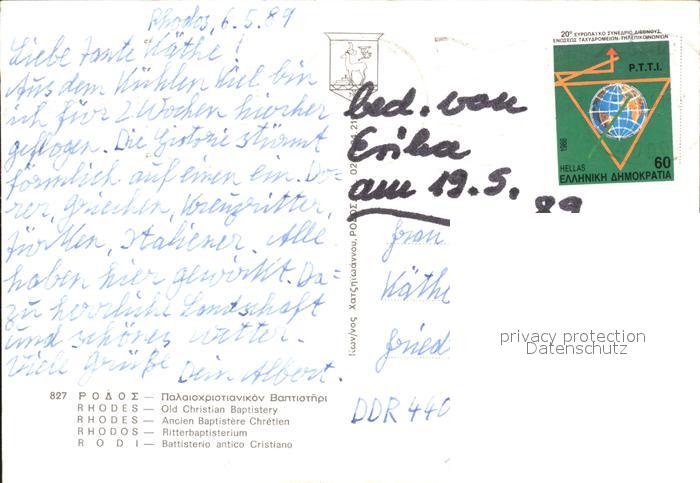 Rhodos, 6.5.89
Liebe Tante Käthe!
Aus dem kühlen Kiel bin
ich für 2 Wochen hierher
geflogen. Die Historie stürmt
förmlich auf einen ein. Do=
rer, Griechen, Kreuzritter,
Türken, Italiener. Alle
haben hier gewirkt. Da=
zu herrliche Landschaft
und schönes Wetter.
Viele Grüße
Dein Albert.
827 ΡΟΔΟΣ — Παλαιοχριστιανικὸν Βαπτιστῆρι
RHODES — Old Christian Baptistery
RHODES — Ancien Baptistère Chrétien
RHODOS — Ritterbaptisterium
RODI — Battisterio antico Cristiano
Κων/νος Χατζηϊωάννου, ΡΟΔΟΣ
bed. von
Erika
am 19.5.
89
20° ΕΥΡΩΠΑΪΚΟ ΣΥΝΕΔΡΙΟ ΔΙΕΘΝΟΥΣ
ΕΝΩΣΕΩΣ ΤΑΧΥΔΡΟΜΕΙΩΝ-ΤΗΛΕΠΙΚΟΙΝΩΝΙΩΝ
P.T.T.I.
1988
HELLAS 60
ΕΛΛΗΝΙΚΗ ΔΗΜΟΚΡΑΤΙΑ
Frau
Käthe
Fried
DDR 440
privacy protection
Datenschutz